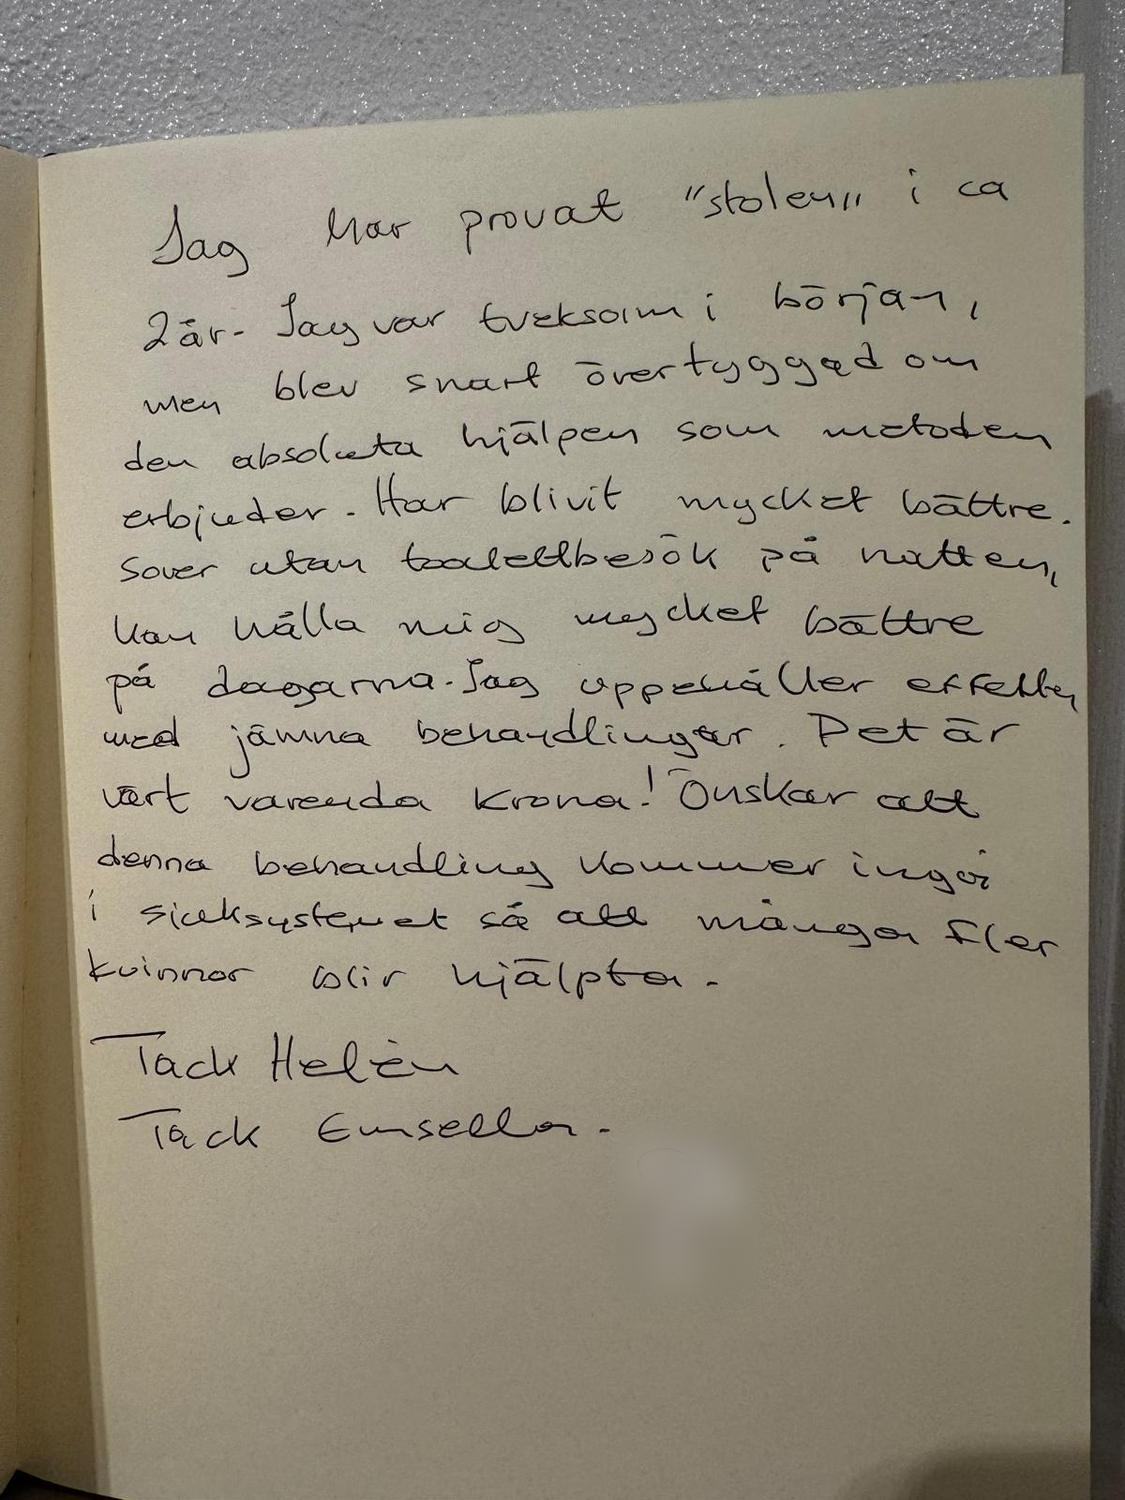 Jag har provat "stolen" i ca
2 år- Jag var tveksam i början,
men blev snart övertyggad om
den absoluta hjälpen som metoden
erbjuder. Har blivit mycket bättre.
Sover utan toalettbesök på natten,
kan hålla mig mycket bättre
på dagarna. Jag uppehåller effekten
med jämna behandlingar. Det är
värt varenda krona! Önskar att
denna behandling kommer ingå
i sjuksystemet så att många fler
kvinnor blir hjälpta.
Tack Helén
Tack Emsella.